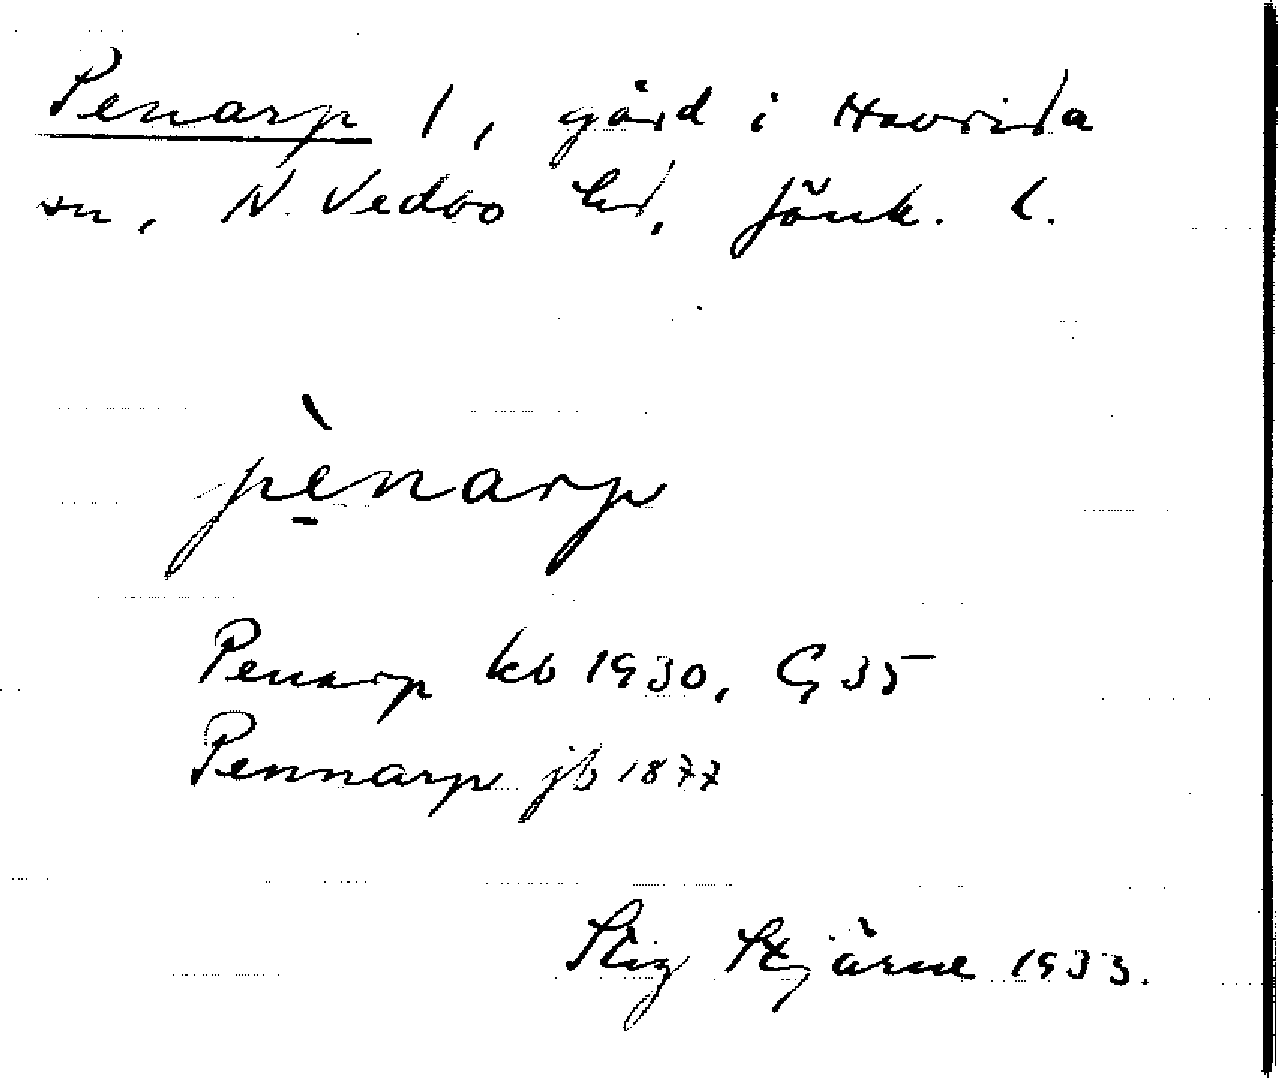 Penarp 1, gård i Haurida
sn, N. Vedbo hd, Jönk. l.
pènarp
Penarp kb 1930, G 35
Pennarp jb 1877
Stig Stjärne 1933.